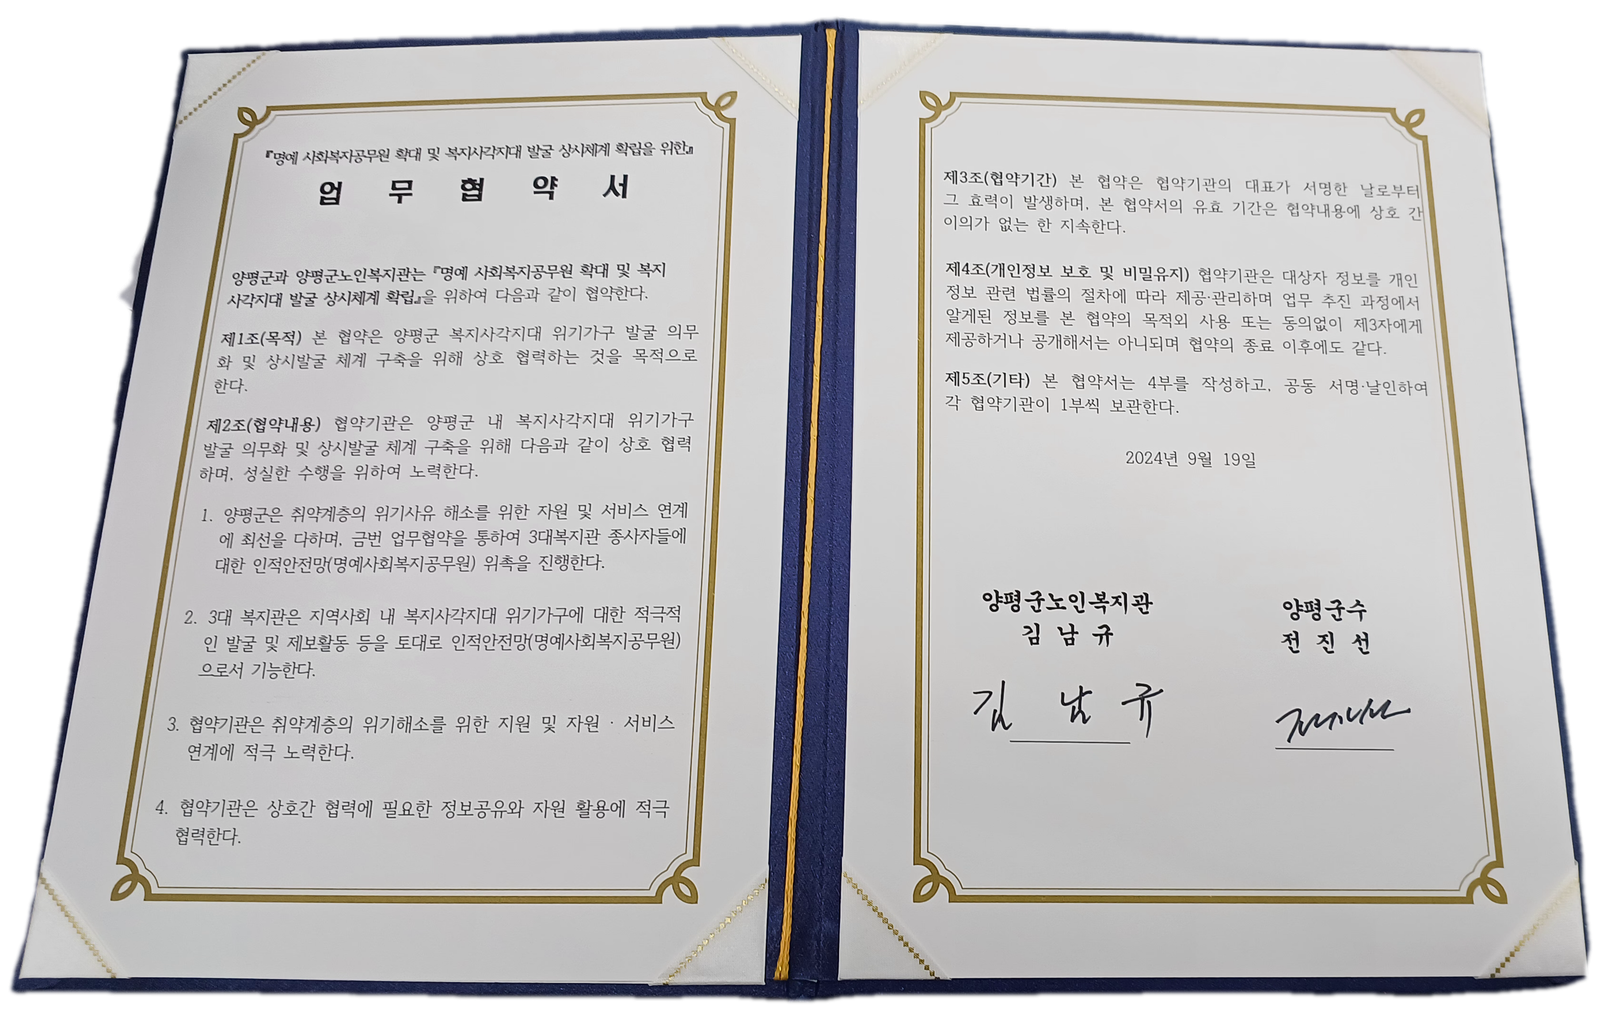 『명예 사회복지공무원 확대 및 복지사각지대 발굴 상시체계 확립을 위한』
업 무 협 약 서
양평군과 양평군노인복지관는 『명예 사회복지공무원 확대 및 복지
사각지대 발굴 상시체계 확립』을 위하여 다음과 같이 협약한다.
제1조(목적) 본 협약은 양평군 복지사각지대 위기가구 발굴 의무
화 및 상시발굴 체계 구축을 위해 상호 협력하는 것을 목적으로
한다.
제2조(협약내용) 협약기관은 양평군 내 복지사각지대 위기가구
발굴 의무화 및 상시발굴 체계 구축을 위해 다음과 같이 상호 협력
하며, 성실한 수행을 위하여 노력한다.
1. 양평군은 취약계층의 위기사유 해소를 위한 자원 및 서비스 연계
에 최선을 다하며, 금번 업무협약을 통하여 3대복지관 종사자들에
대한 인적안전망(명예사회복지공무원) 위촉을 진행한다.
2. 3대 복지관은 지역사회 내 복지사각지대 위기가구에 대한 적극적
인 발굴 및 제보활동 등을 토대로 인적안전망(명예사회복지공무원)
으로서 기능한다.
3. 협약기관은 취약계층의 위기해소를 위한 지원 및 자원 · 서비스
연계에 적극 노력한다.
4. 협약기관은 상호간 협력에 필요한 정보공유와 자원 활용에 적극
협력한다.
제3조(협약기간) 본 협약은 협약기관의 대표가 서명한 날로부터
그 효력이 발생하며, 본 협약서의 유효 기간은 협약내용에 상호 간
이의가 없는 한 지속한다.
제4조(개인정보 보호 및 비밀유지) 협약기관은 대상자 정보를 개인
정보 관련 법률의 절차에 따라 제공·관리하며 업무 추진 과정에서
알게된 정보를 본 협약의 목적외 사용 또는 동의없이 제3자에게
제공하거나 공개해서는 아니되며 협약의 종료 이후에도 같다.
제5조(기타) 본 협약서는 4부를 작성하고, 공동 서명·날인하여
각 협약기관이 1부씩 보관한다.
2024년 9월 19일
양평군노인복지관
김 남 규
김 남 규
양평군수
전 진 선